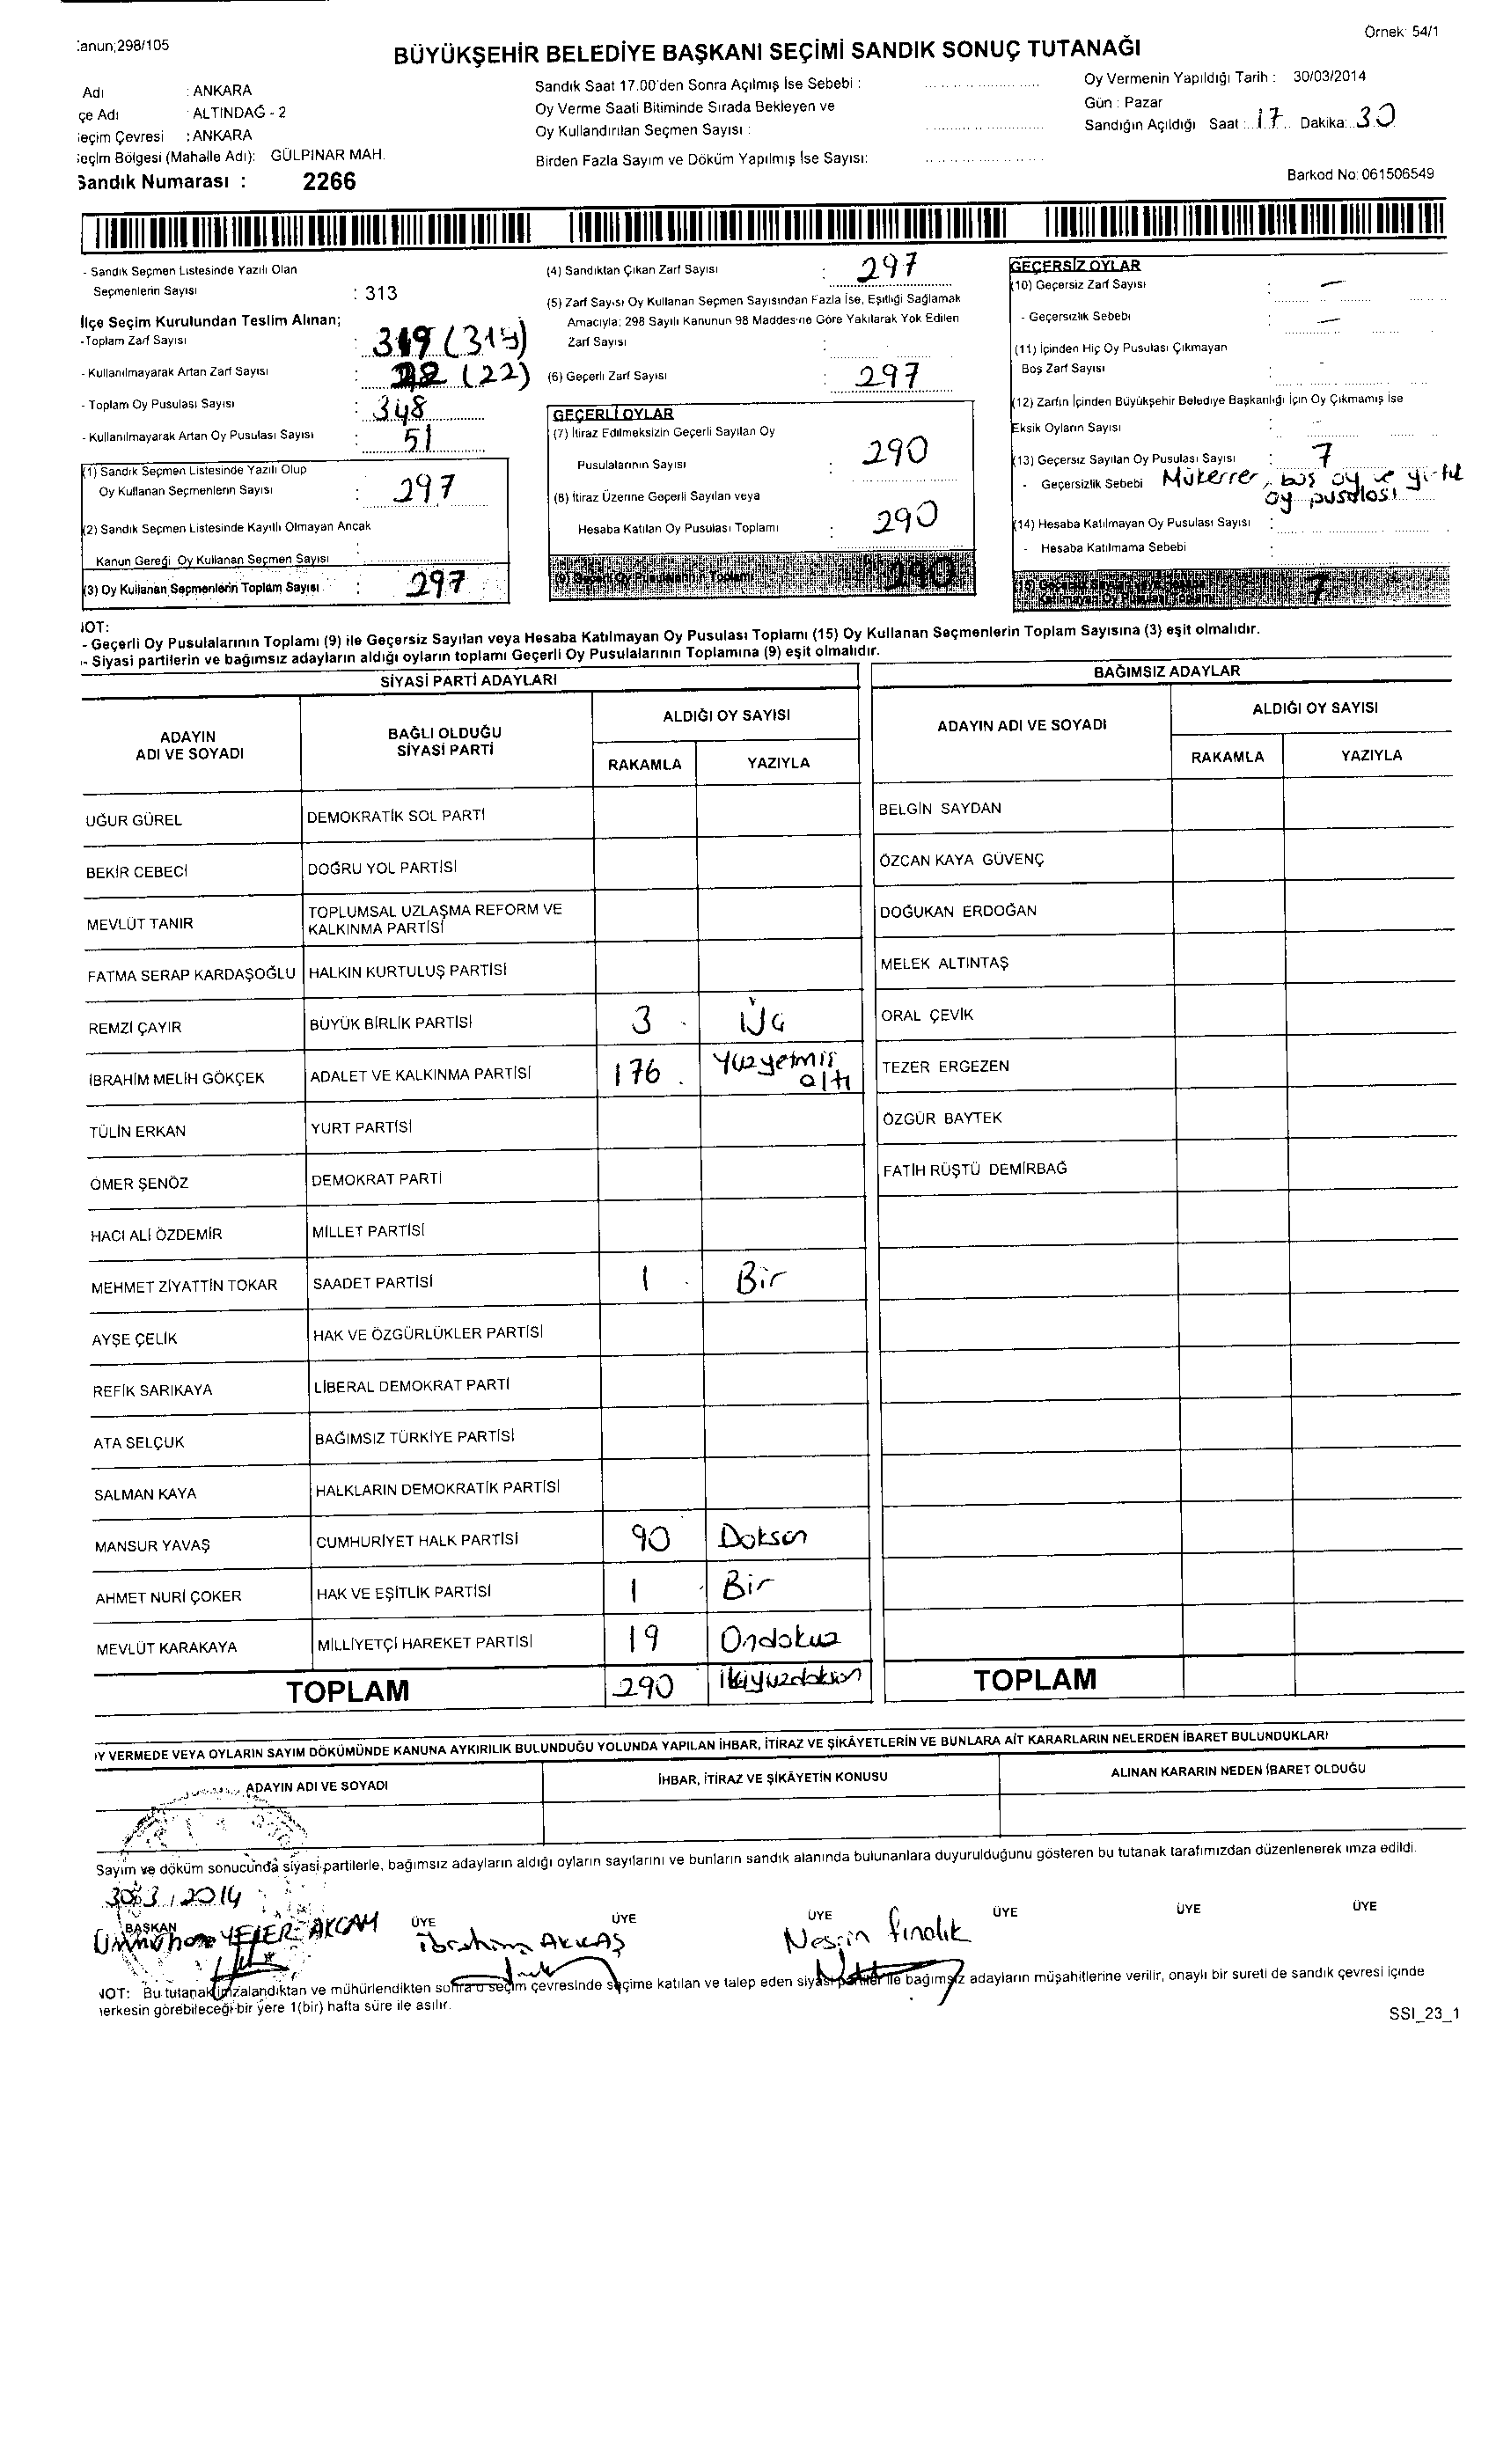 :anun;298/105
Örnek: 54/1
BÜYÜKŞEHİR BELEDİYE BAŞKANI SEÇİMİ SANDIK SONUÇ TUTANAĞI
Adı : ANKARA
çe Adı : ALTINDAĞ - 2
eçim Çevresi : ANKARA
eçim Bölgesi (Mahalle Adı): GÜLPINAR MAH.
Sandık Numarası : 2266
Sandık Saat 17.00'den Sonra Açılmış İse Sebebi :
Oy Verme Saati Bitiminde Sırada Bekleyen ve
Oy Kullandırılan Seçmen Sayısı :
Birden Fazla Sayım ve Döküm Yapılmış İse Sayısı:
Oy Vermenin Yapıldığı Tarih : 30/03/2014
Gün : Pazar
Sandığın Açıldığı Saat : 17 Dakika: 30
Barkod No: 061506549
- Sandık Seçmen Listesinde Yazılı Olan
Seçmenlerin Sayısı : 313
İlçe Seçim Kurulundan Teslim Alınan;
-Toplam Zarf Sayısı : 319 (319)
- Kullanılmayarak Artan Zarf Sayısı : (22)
- Toplam Oy Pusulası Sayısı : 348
- Kullanılmayarak Artan Oy Pusulası Sayısı : 51
(1) Sandık Seçmen Listesinde Yazılı Olup
Oy Kullanan Seçmenlerin Sayısı : 297
(2) Sandık Seçmen Listesinde Kayıtlı Olmayan Ancak
Kanun Gereği Oy Kullanan Seçmen Sayısı :
(3) Oy Kullanan Seçmenlerin Toplam Sayısı : 297
(4) Sandıktan Çıkan Zarf Sayısı : 297
(5) Zarf Sayısı Oy Kullanan Seçmen Sayısından Fazla İse, Eşitliği Sağlamak
Amacıyla; 298 Sayılı Kanunun 98 Maddesine Göre Yakılarak Yok Edilen
Zarf Sayısı :
(6) Geçerli Zarf Sayısı : 297
GEÇERLİ OYLAR
(7) İtiraz Edilmeksizin Geçerli Sayılan Oy
Pusulalarının Sayısı : 290
(8) İtiraz Üzerine Geçerli Sayılan veya
Hesaba Katılan Oy Pusulası Toplamı : 290
(9) Geçerli Oy Pusulalarının Toplamı 290
GEÇERSİZ OYLAR
(10) Geçersiz Zarf Sayısı : —
- Geçersizlik Sebebi : —
(11) İçinden Hiç Oy Pusulası Çıkmayan
Boş Zarf Sayısı : -
(12) Zarfın İçinden Büyükşehir Belediye Başkanlığı İçin Oy Çıkmamış İse
Eksik Oyların Sayısı : -
(13) Geçersiz Sayılan Oy Pusulası Sayısı : 7
- Geçersizlik Sebebi Mükerrer, boş oy ve yırtık
oy pusulası
(14) Hesaba Katılmayan Oy Pusulası Sayısı :
- Hesaba Katılmama Sebebi :
(15) Geçersiz Sayılan veya Hesaba
Katılmayan Oy Pusulası Toplamı 7
NOT:
- Geçerli Oy Pusulalarının Toplamı (9) ile Geçersiz Sayılan veya Hesaba Katılmayan Oy Pusulası Toplamı (15) Oy Kullanan Seçmenlerin Toplam Sayısına (3) eşit olmalıdır.
- Siyasi partilerin ve bağımsız adayların aldığı oyların toplamı Geçerli Oy Pusulalarının Toplamına (9) eşit olmalıdır.
SİYASİ PARTİ ADAYLARI
ADAYIN ADI VE SOYADI BAĞLI OLDUĞU SİYASİ PARTİ ALDIĞI OY SAYISI
RAKAMLA YAZIYLA
UĞUR GÜREL DEMOKRATİK SOL PARTİ
BEKİR CEBECİ DOĞRU YOL PARTİSİ
MEVLÜT TANIR TOPLUMSAL UZLAŞMA REFORM VE
KALKINMA PARTİSİ
FATMA SERAP KARDAŞOĞLU HALKIN KURTULUŞ PARTİSİ
REMZİ ÇAYIR BÜYÜK BİRLİK PARTİSİ 3 Üç
İBRAHİM MELİH GÖKÇEK ADALET VE KALKINMA PARTİSİ 176 Yüzyetmiş
altı
TÜLİN ERKAN YURT PARTİSİ
ÖMER ŞENÖZ DEMOKRAT PARTİ
HACI ALİ ÖZDEMİR MİLLET PARTİSİ
MEHMET ZİYATTİN TOKAR SAADET PARTİSİ 1 Bir
AYŞE ÇELİK HAK VE ÖZGÜRLÜKLER PARTİSİ
REFİK SARIKAYA LİBERAL DEMOKRAT PARTİ
ATA SELÇUK BAĞIMSIZ TÜRKİYE PARTİSİ
SALMAN KAYA HALKLARIN DEMOKRATİK PARTİSİ
MANSUR YAVAŞ CUMHURİYET HALK PARTİSİ 90 Doksan
AHMET NURİ ÇOKER HAK VE EŞİTLİK PARTİSİ 1 Bir
MEVLÜT KARAKAYA MİLLİYETÇİ HAREKET PARTİSİ 19 Ondokuz
TOPLAM 290 ikiyüzdoksan
BAĞIMSIZ ADAYLAR
ADAYIN ADI VE SOYADI ALDIĞI OY SAYISI
RAKAMLA YAZIYLA
BELGİN SAYDAN
ÖZCAN KAYA GÜVENÇ
DOĞUKAN ERDOĞAN
MELEK ALTINTAŞ
ORAL ÇEVİK
TEZER ERGEZEN
ÖZGÜR BAYTEK
FATİH RÜŞTÜ DEMİRBAĞ
TOPLAM
Y VERMEDE VEYA OYLARIN SAYIM DÖKÜMÜNDE KANUNA AYKIRILIK BULUNDUĞU YOLUNDA YAPILAN İHBAR, İTİRAZ VE ŞİKÂYETLERİN VE BUNLARA AİT KARARLARIN NELERDEN İBARET BULUNDUKLARI
ADAYIN ADI VE SOYADI İHBAR, İTİRAZ VE ŞİKÂYETİN KONUSU ALINAN KARARIN NEDEN İBARET OLDUĞU
Sayım ve döküm sonucunda siyasi partilerle, bağımsız adayların aldığı oyların sayılarını ve bunların sandık alanında bulunanlara duyurulduğunu gösteren bu tutanak tarafımızdan düzenlenerek imza edildi.
30/3/2014
BAŞKAN ÜYE ÜYE ÜYE ÜYE ÜYE ÜYE
Ümmühan YETER AKÇAM İbrahim AKKAŞ Nesrin Fınalık
NOT: Bu tutanak imzalandıktan ve mühürlendikten sonra o seçim çevresinde seçime katılan ve talep eden siyasi partiler ile bağımsız adayların müşahitlerine verilir, onaylı bir sureti de sandık çevresi içinde
herkesin görebileceği bir yere 1(bir) hafta süre ile asılır.
SSI_23_1